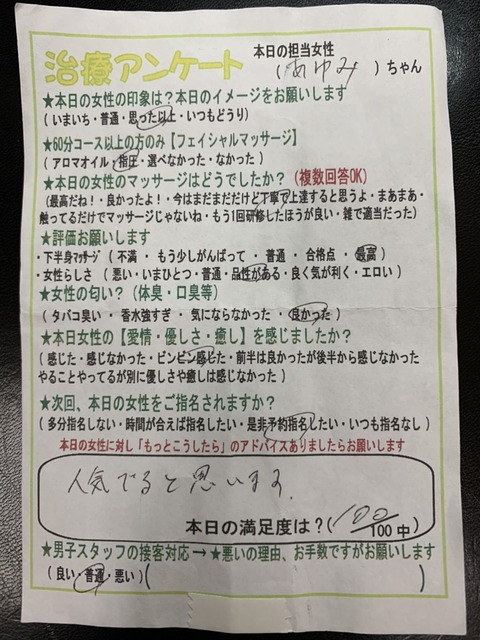 治療アンケート
本日の担当女性
( あゆみ )ちゃん
★本日の女性の印象は？本日のイメージをお願いします
( いまいち・普通・思った以上・いつもどうり)
★60分コース以上の方のみ【フェイシャルマッサージ】
( アロマオイル・指圧・選べなかった・なかった )
★本日の女性のマッサージはどうでしたか？(複数回答OK)
(最高だね！・良かったよ！・今はまだまだだけど丁寧で上達すると思うよ・まあまあ・
触ってるだけでマッサージじゃないね・もう1回研修したほうが良い・雑で適当だった)
★評価お願いします
・下半身ﾏｯｻｰｼﾞ ( 不満 ・ もう少しがんばって ・ 普通 ・ 合格点 ・ 最高 )
・女性らしさ ( 悪い・いまひとつ・普通・品性がある・良く気が利く・エロい )
★女性の匂い？ (体臭・口臭等)
( タバコ臭い ・ 香水強すぎ ・ 気にならなかった ・ 良かった )
★本日女性の【愛情・優しさ・癒し】を感じましたか？
( 感じた・感じなかった・ビンビン感じた・前半は良かったが後半から感じなかった
やることやってるが別に優しさや癒しは感じなかった )
★次回、本日の女性をご指名されますか？
( 多分指名しない・時間が合えば指名したい・是非予約指名したい・いつも指名なし )
本日の女性に対し「もっとこうしたら」のアドバイスありましたらお願いします
人気でると思います。
本日の満足度は？( 100/100中)
★男子スタッフの接客対応 → ★悪いの理由、お手数ですがお願いします
( 良い・普通・悪い ) ( )